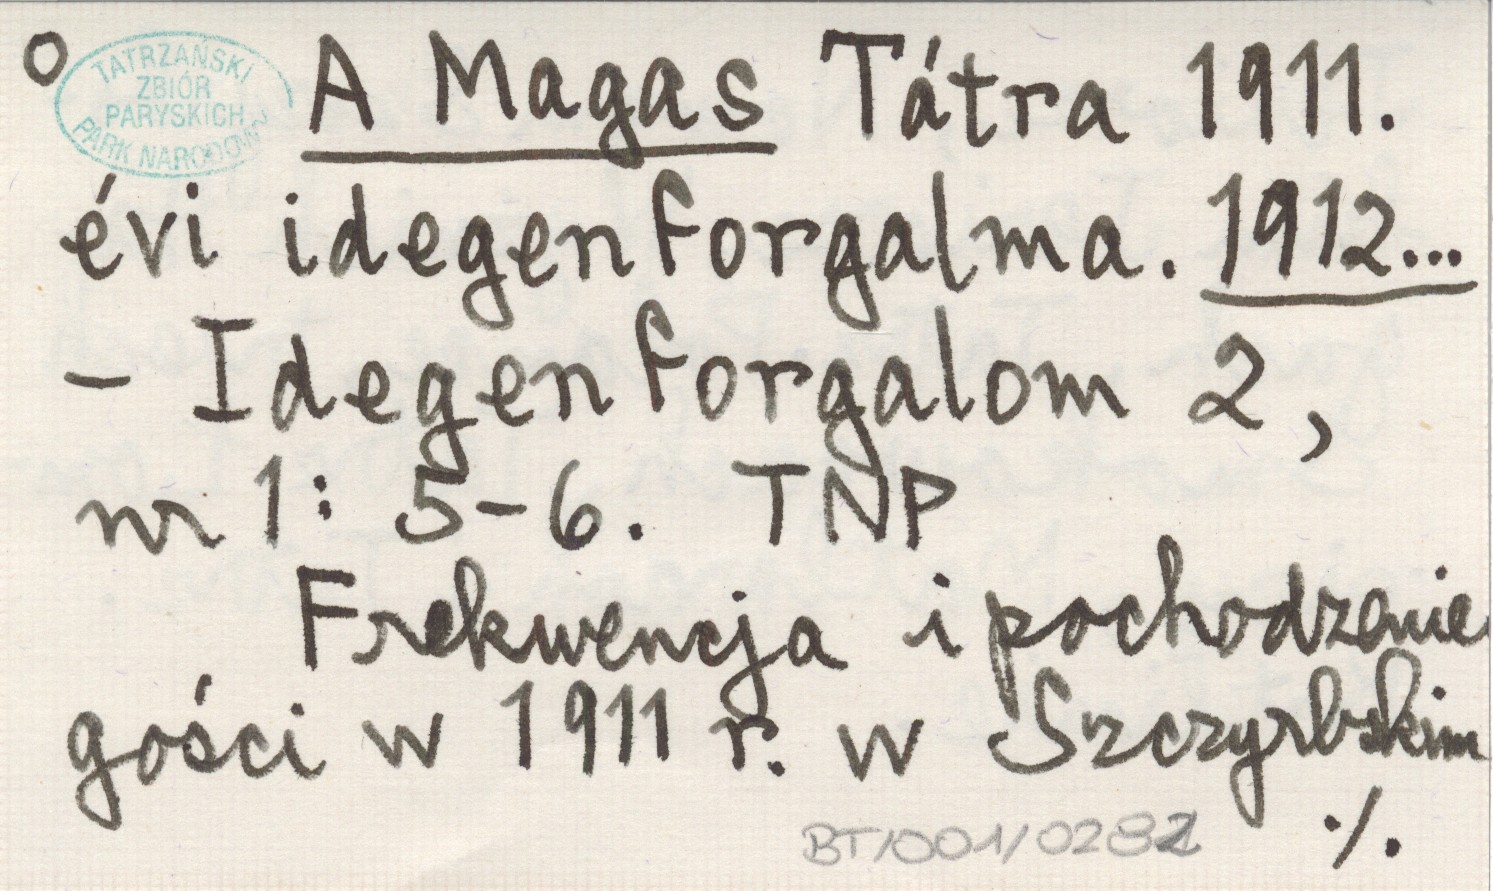 O
TATRZAŃSKI
ZBIÓR
PARYSKICH
PARK NARODOWY
A Magas Tátra 1911.
évi idegenforgalma. 1912...
- Idegenforgalom 2,
nr 1: 5-6. TNP
Frekwencja i pochodzenie
gości w 1911 r. w Szczyrbskim
./.
BT/001/0282